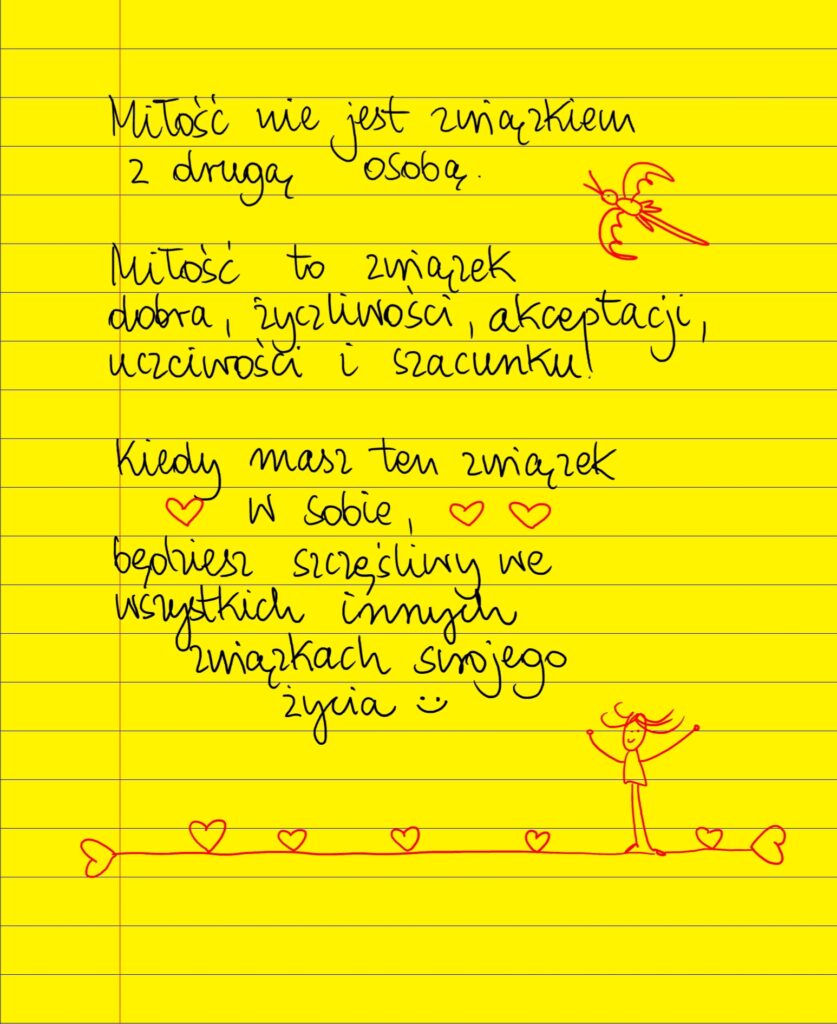 Miłość nie jest związkiem
z drugą osobą.
Miłość to związek
dobra, życzliwości, akceptacji,
uczciwości i szacunku!
Kiedy masz ten związek
w sobie,
będziesz szczęśliwy we
wszystkich innych
związkach swojego
życia :)